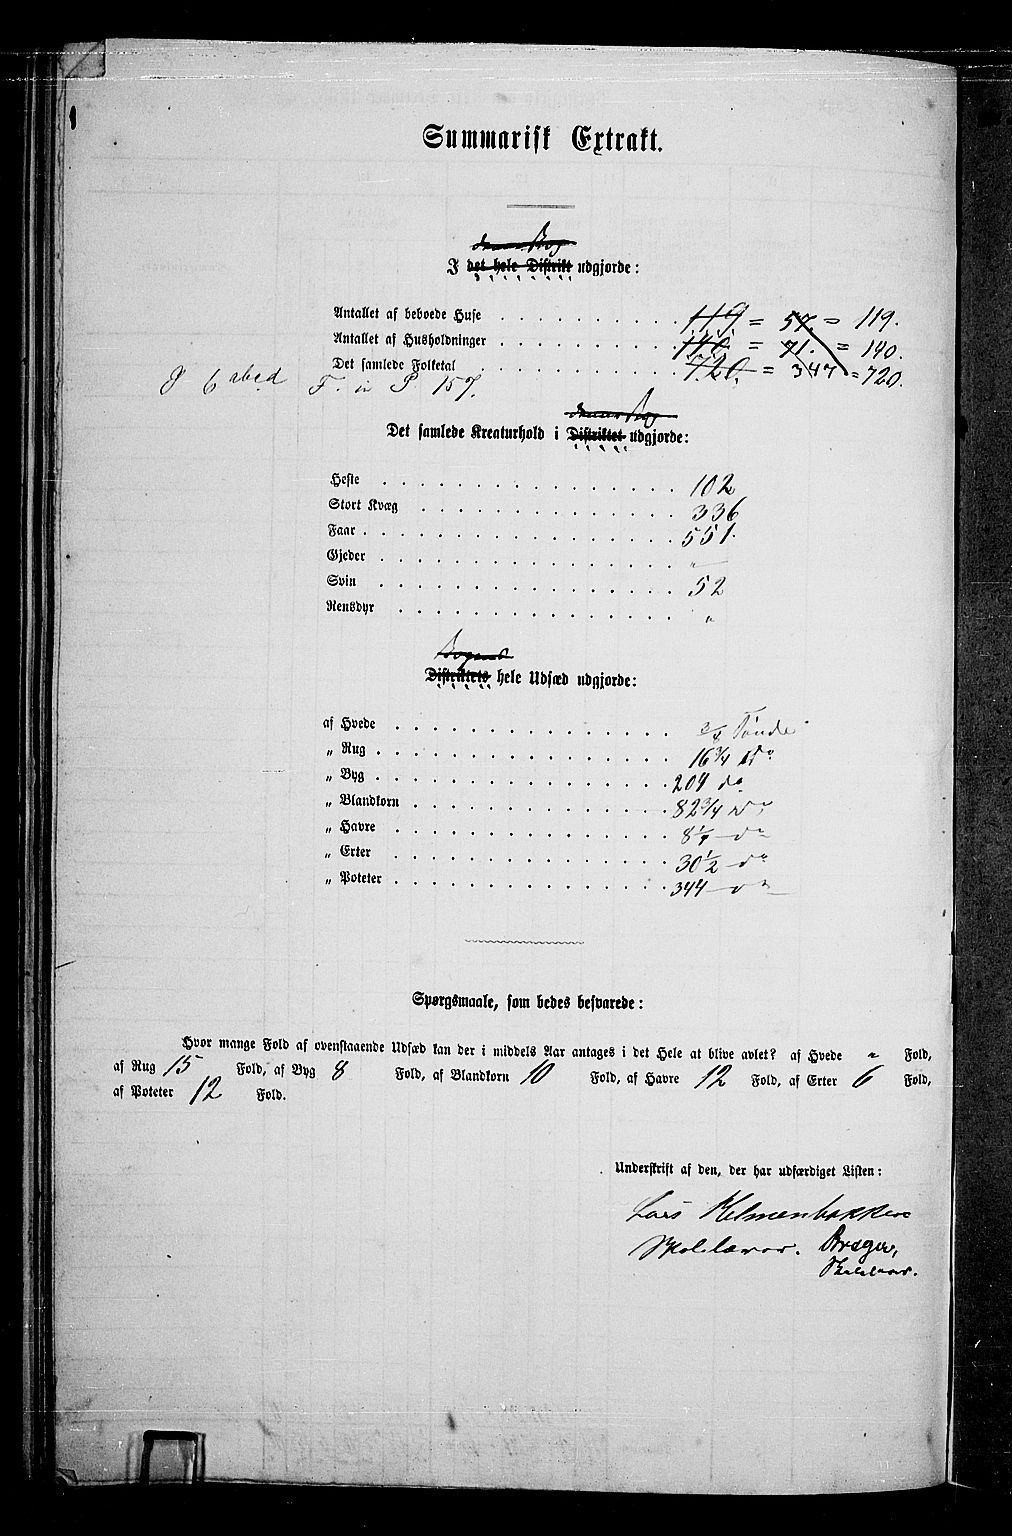 Summarisk Extrakt.
denne Bog
I det hele Distrikt udgjorde:
Antallet af beboede Huse 119 = 57. = 119.
Antallet af Husholdninger 140. = 71. = 140.
Det samlede Folketal 720. = 347 = 720.
157.
denne Bog
Det samlede Kreaturhold i Distriktet udgjorde:
Heste 102
Stort Kvæg 336
Faar 551.
Gjeder "
Svin 52
Rensdyr "
Bogens
Distriktets hele Udsæd udgjorde:
af Hvede 3/4 Tønde
„ Rug 16 3/4 do
„ Byg 204 do
„ Blandkorn 82 3/4 do
„ Havre do
„ Erter 30 1/2 do
„ Poteter 344 do
Spørgsmaale, som bedes besvarede:
Hvor mange Fold af ovenstaaende Udsæd kan der i middels Aar antages i det Hele at blive avlet? af Hvede " Fold,
af Rug 15 Fold, af Byg 8 Fold, af Blandkorn 10 Fold, af Havre 12 Fold, af Erter 6 Fold,
af Poteter 12 Fold.
Underskrift af den, der har udfærdiget Listen:
Lars